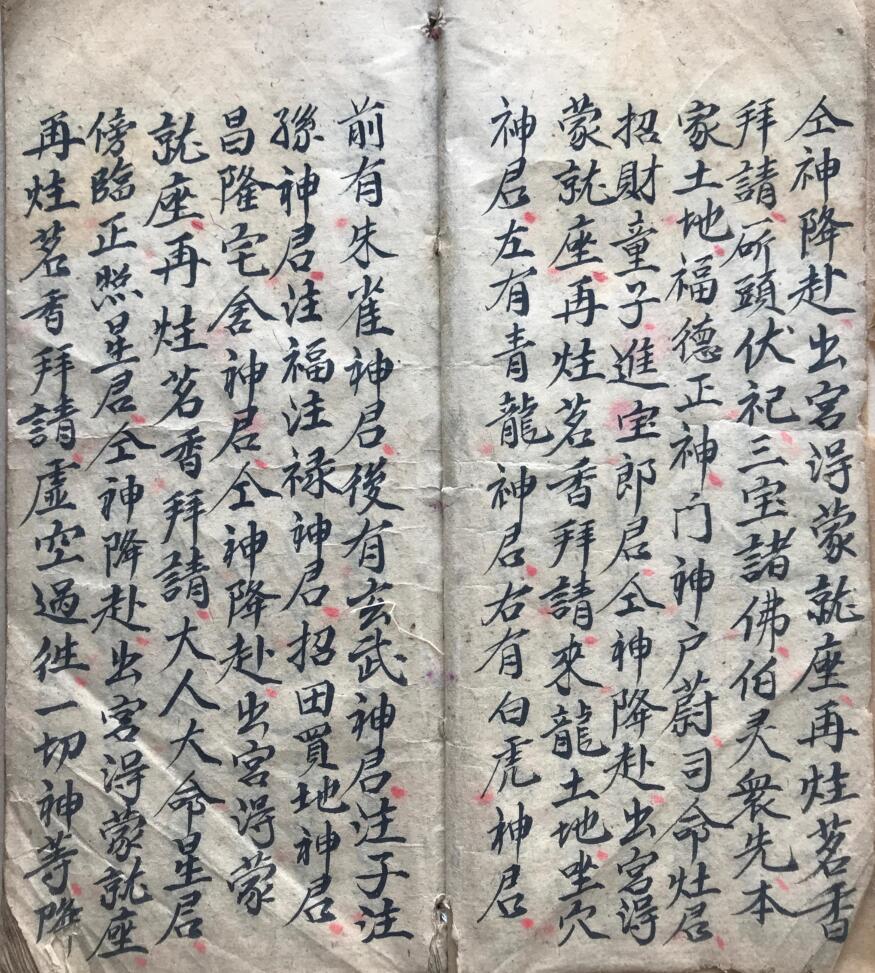 仝神降赴出宮淂蒙就座再炷茗香
拜請斫頭伏祀三宝諸佛伯灵衆先本
家土地福德正神门神户蔚司命灶君
招財童子進宝郎君仝神降赴出宮淂
蒙就座再炷茗香拜請來龍土地坐穴
神君左有青龍神君右有白虎神君
前有朱雀神君後有玄武神君注子注
孫神君注福注禄神君招田買地神君
昌隆宅舍神君仝神降赴出宮淂蒙
就座再炷茗香拜請大人大命星君
傍臨正照星君仝神降赴出宮淂蒙就座
再炷茗香拜請虛空過徃一切神等降